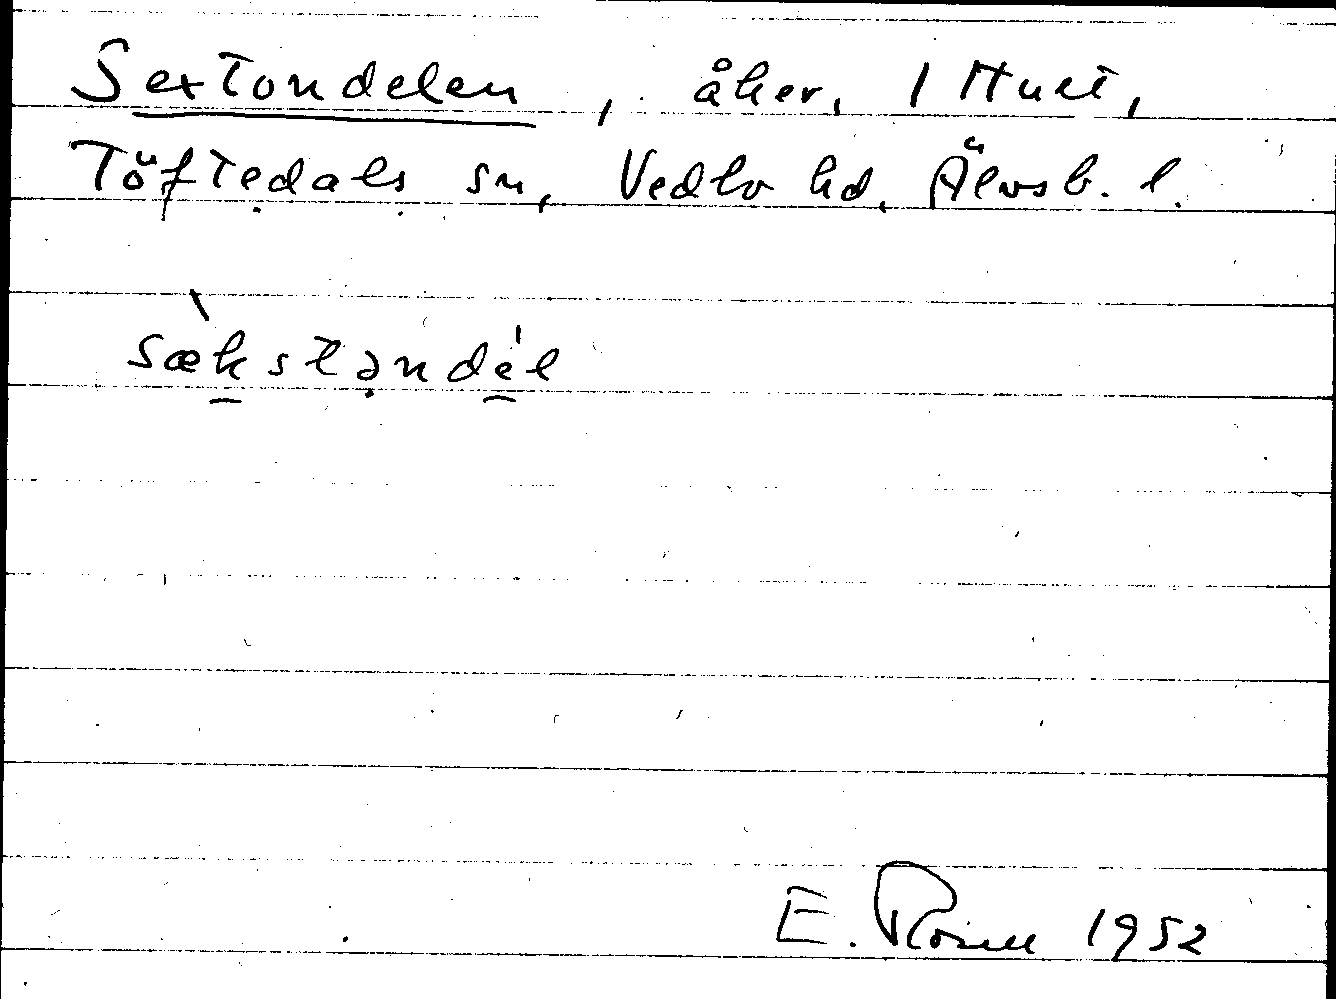 Sextondelen, åker, 1 Hult,
Töftedals sn, Vedbo hd, Älvsb. l.
sækstəndel
E. Rosell 1952